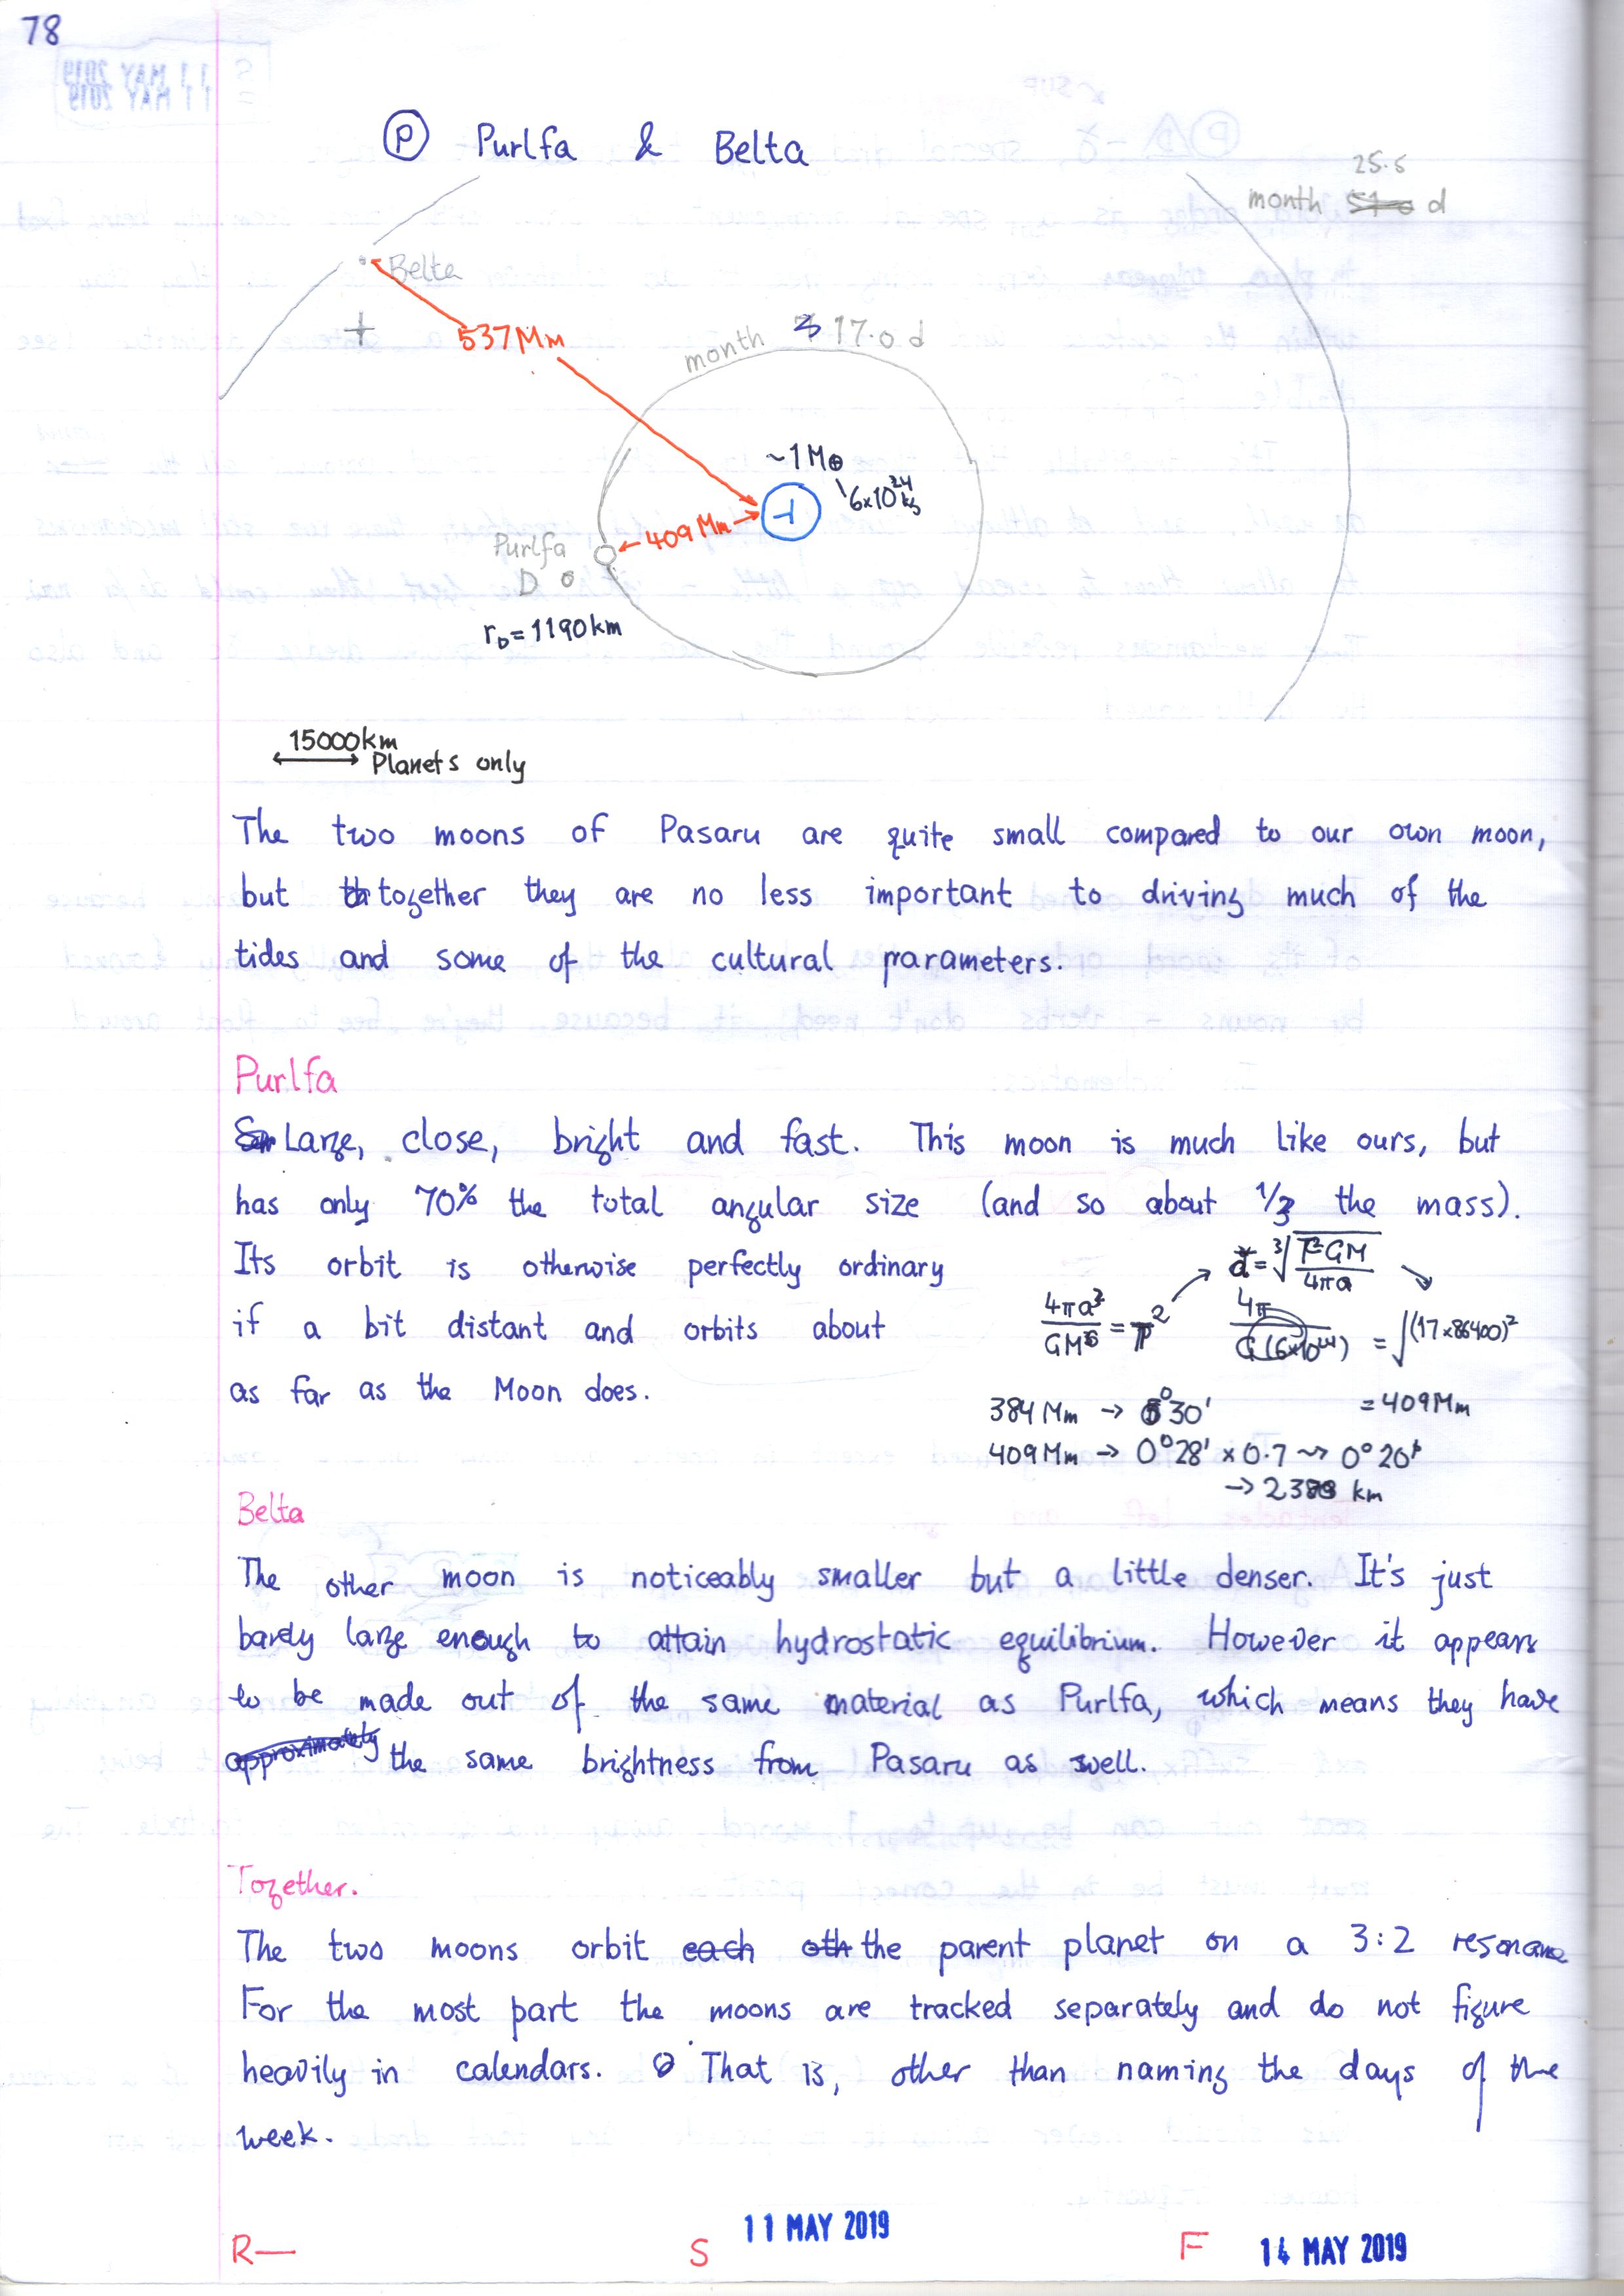 78
Ⓟ Purlfa & Belta
25.5
month 51.0 d
Belta
537Mm
month 17.0 d
~1M⊕
6x10²⁴ kg
409 Mm
Purlfa
D
r_D = 1190km
15000km
Planets only
The two moons of Pasaru are quite small compared to our own moon,
but together they are no less important to driving much of the
tides and some of the cultural parameters.
Purlfa
Large, close, bright and fast. This moon is much like ours, but
has only 70% the total angular size (and so about 1/3 the mass).
Its orbit is otherwise perfectly ordinary
if a bit distant and orbits about
as far as the Moon does.
d = ³√(T²GM / 4πa)
4πa³ / GM = T²
4π / G(6x10²⁴) = √(17x86400)²
= 409Mm
384 Mm → 0°30'
409 Mm → 0°28' x 0.7 ⇝ 0°20'
→ 2388 km
Belta
The other moon is noticeably smaller but a little denser. It's just
barely large enough to attain hydrostatic equilibrium. However it appears
to be made out of the same material as Purlfa, which means they have
approximately the same brightness from Pasaru as well.
Together.
The two moons orbit each oth the parent planet on a 3:2 resonance
For the most part the moons are tracked separately and do not figure
heavily in calendars. That is, other than naming the days of the
week.
R— S 11 MAY 2019 F 14 MAY 2019